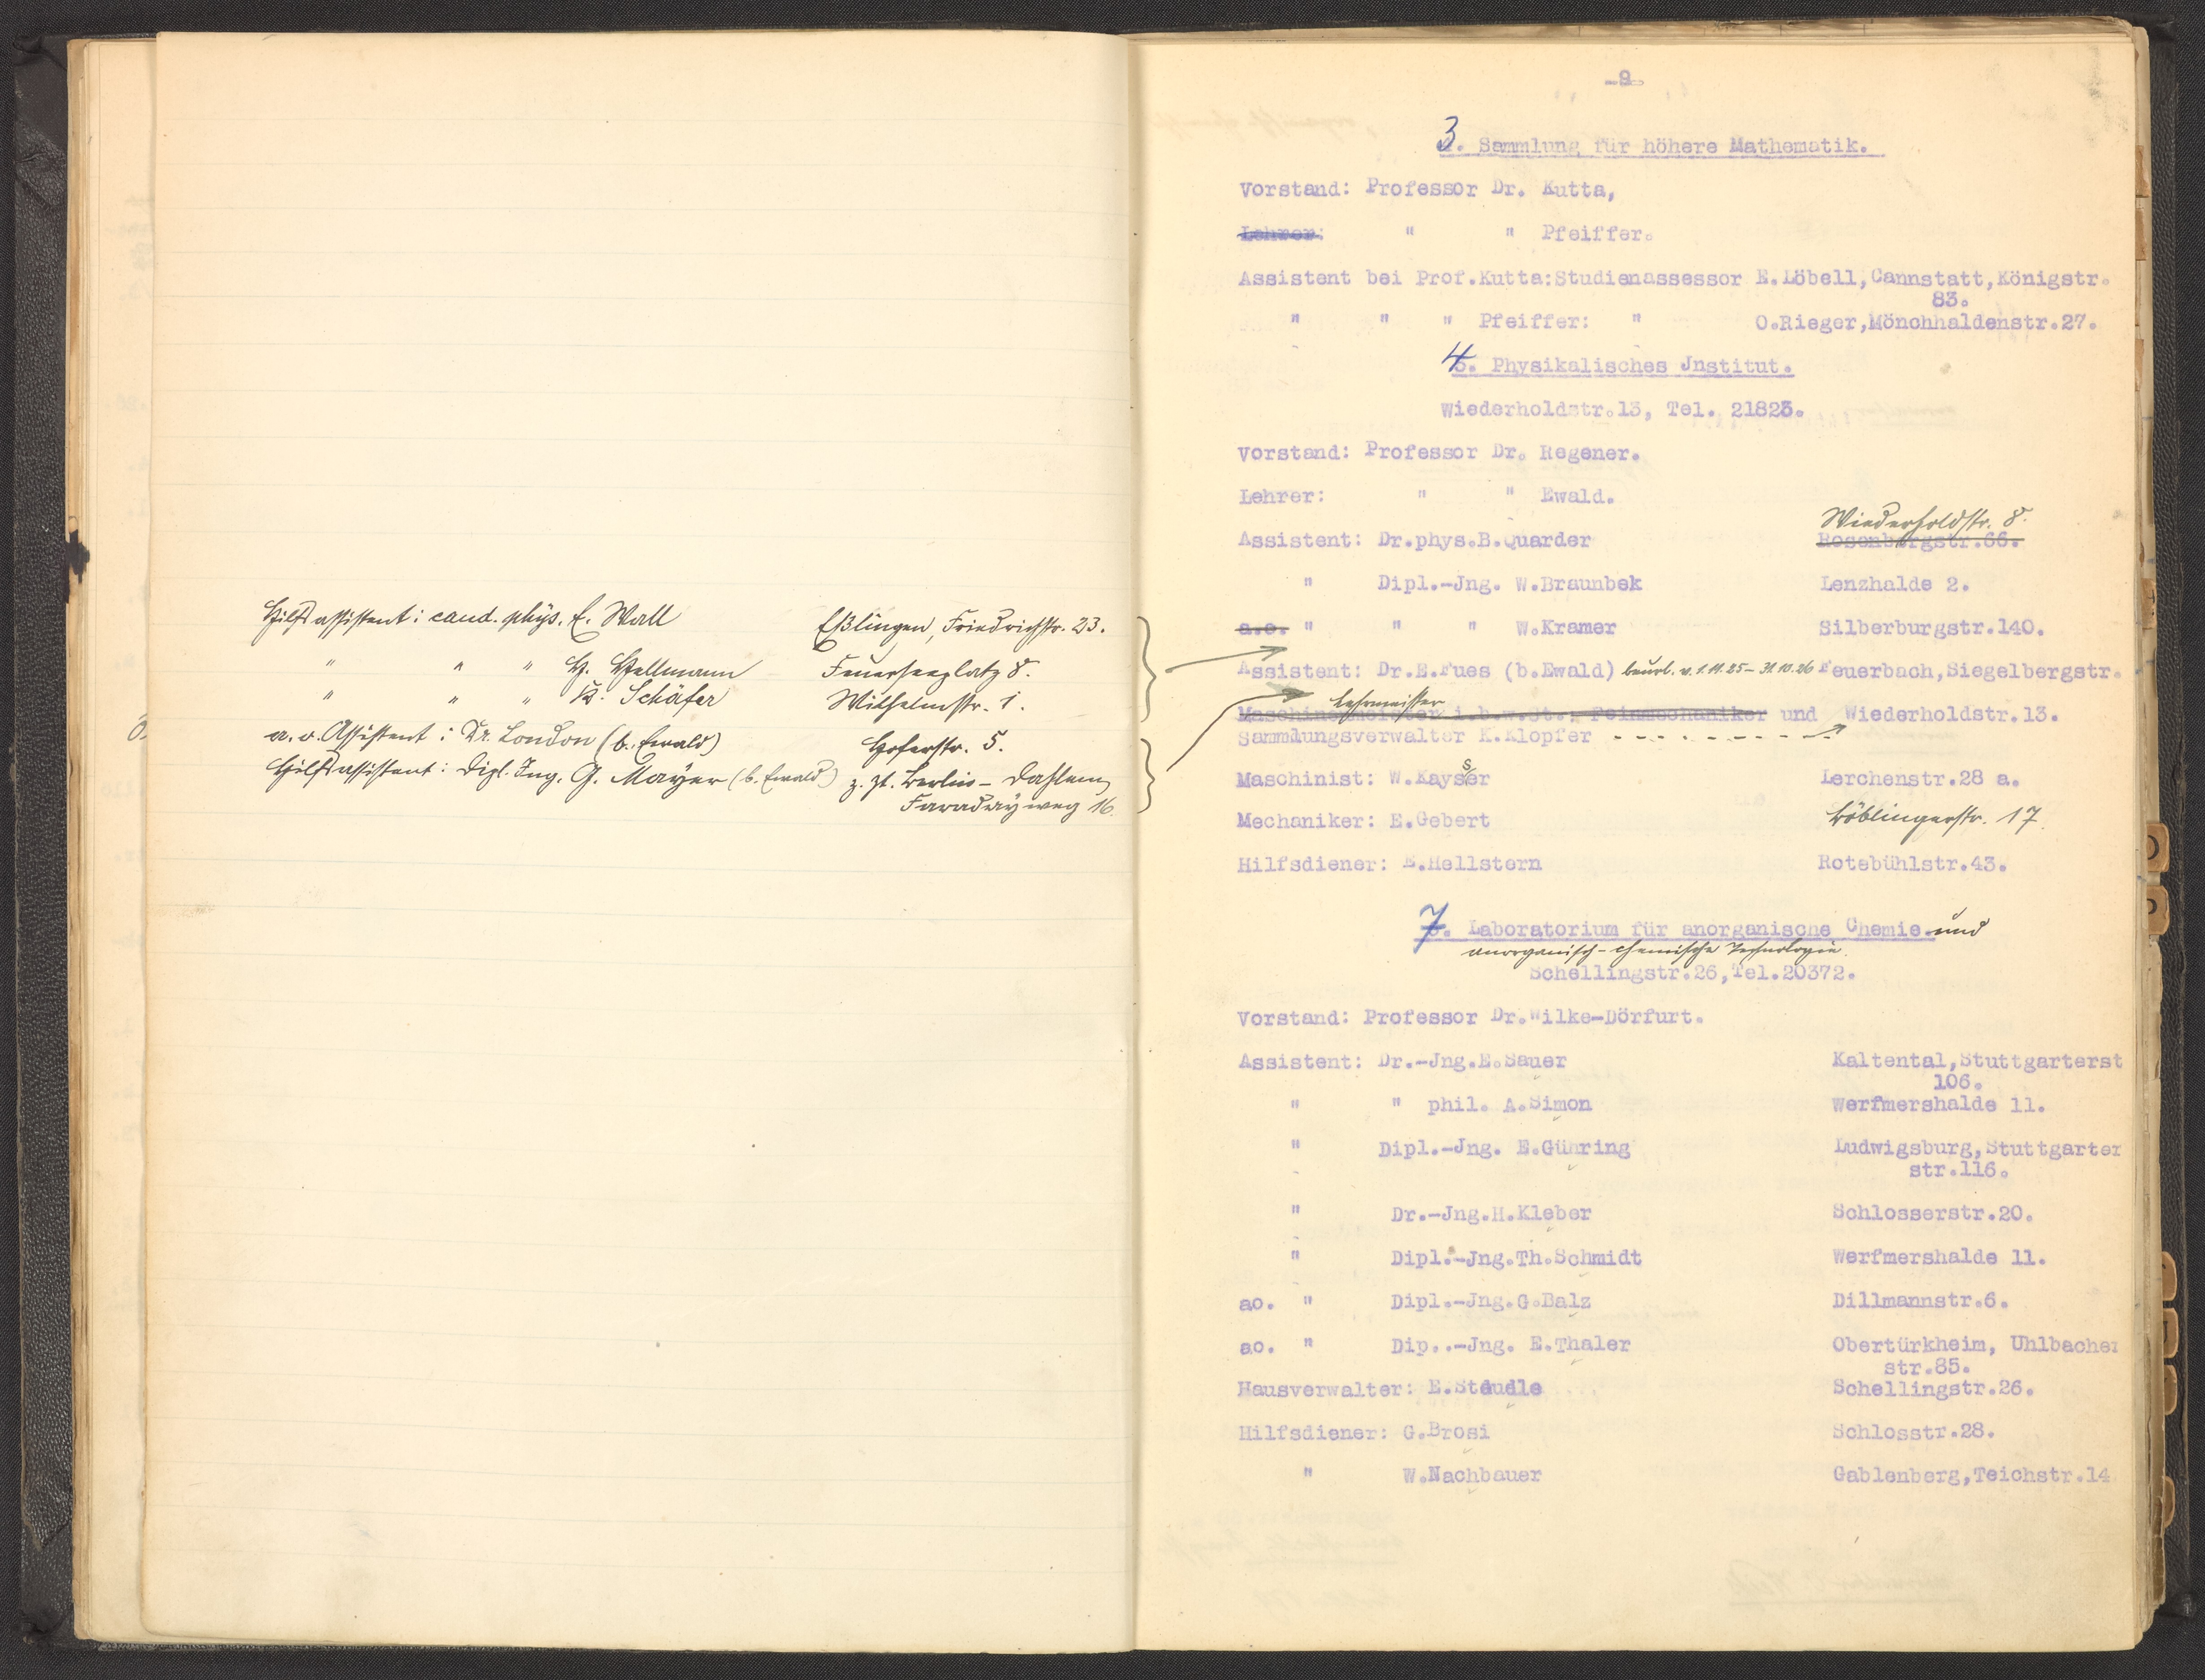 Hilfsassistent: cand. phys. E. Wall Eßlingen, Friedrichstr. 23.
" " " H. Hellmann Feuerseeplatz 8.
" " " K. Schäfer Wilhelmstr. 1.
a. o. Assistent: Dr. London (b. Ewald) Hoferstr. 5.
Hilfsassistent: Dipl. Ing. G. Mayer (b. Ewald) z. Zt. Berlin-Dahlem,
Faradayweg 16.
-9-
3. Sammlung für höhere Mathematik.
Vorstand: Professor Dr. Kutta,
Lehrer: " " Pfeiffer.
Assistent bei Prof.Kutta:Studienassessor E.Löbell,Cannstatt,Königstr.
83.
" " " Pfeiffer: " O.Rieger,Mönchhaldenstr.27.
4. Physikalisches Jnstitut.
Wiederholdstr.13, Tel. 21823.
Vorstand: Professor Dr. Regener.
Lehrer: " " Ewald.
Wiederholdstr. 8.
Assistent: Dr.phys.B.Quarder Rosenbergstr.66.
" Dipl.-Jng. W.Braunbek Lenzhalde 2.
a.o. " " " W.Kramer Silberburgstr.140.
Assistent: Dr.E.Fues (b.Ewald) beurl. v. 1.11.25 - 31.10.26 Feuerbach,Siegelbergstr.
Lehrmeister
Maschinenmeister i.b.w.St., Feinmechaniker und Wiederholdstr.13.
Sammlungsverwalter K.Klopfer - - - - - - - - -
Maschinist: W.Kaysser Lerchenstr.28 a.
Mechaniker: E.Gebert Böblingerstr. 17.
Hilfsdiener: E.Hellstern Rotebühlstr.43.
7. Laboratorium für anorganische Chemie und
anorganisch-chemische Technologie.
Schellingstr.26,Tel.20372.
Vorstand: Professor Dr.Wilke-Dörfurt.
Assistent: Dr.-Jng.E.Sauer Kaltental,Stuttgarterst
106.
" " phil. A.Simon Werfmershalde 11.
" Dipl.-Jng. E.Gühring Ludwigsburg,Stuttgarter
str.116.
" Dr.-Jng.H.Kleber Schlosserstr.20.
" Dipl.-Jng.Th.Schmidt Werfmershalde 11.
ao. " Dipl.-Jng.G.Balz Dillmannstr.6.
ao. " Dip..-Jng. E.Thaler Obertürkheim, Uhlbacher
str.85.
Hausverwalter: E.Stäudle Schellingstr.26.
Hilfsdiener: G.Brosi Schlosstr.28.
" W.Nachbauer Gablenberg,Teichstr.14